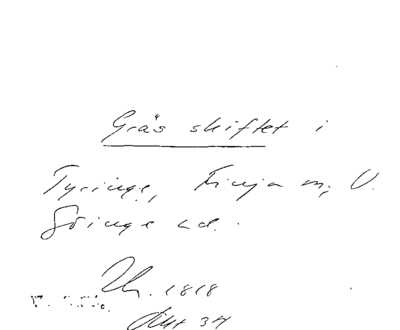 Gräs skiftet i
Tyringe, Finja m; V.
Göinge hd.
1818
34